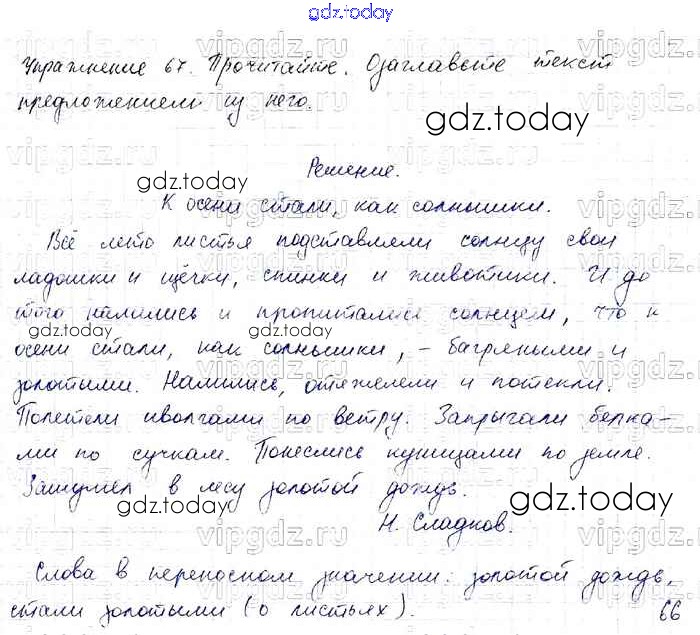 gdz.today
Упражнение 67. Прочитайте. Озаглавьте текст
предложением из него.
gdz.today
Решение.
gdz.today
К осени стали, как солнышки.
Всё лето листья подставляли солнцу свои
ладошки и щёчки, спинки и животики. И до
того налились и пропитались солнцем, что к
gdz.today gdz.today
осени стали, как солнышки, - багряными и
золотыми. Налились, отяжелели и потекли.
Полетели иволгами по ветру. Запрыгали белка-
ми по сучкам. Понеслись куницами по земле.
Зашумел в лесу золотой дождь.
gdz.today gdz.today
Н. Сладков.
Слова в переносном значении: золотой дождь,
стали золотыми (о листьях).
66